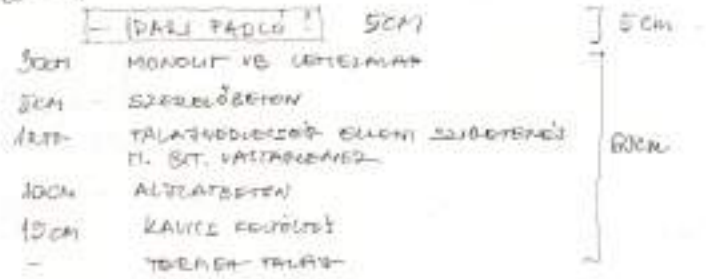 - IPARI PADLÓ! 5CM ] 5 cm
30cm MONOLIT VB LEMEZALAP
5CM SZERELŐBETON
1 RTG. TALAJNEDVESSÉG ELLENI SZIGETELÉS
M. BIT. VASTAGLEMEZ 60cm
10CM ALJZATBETON
15 cm KAVICS FELTÖLTÉS
- TERMETT TALAJ